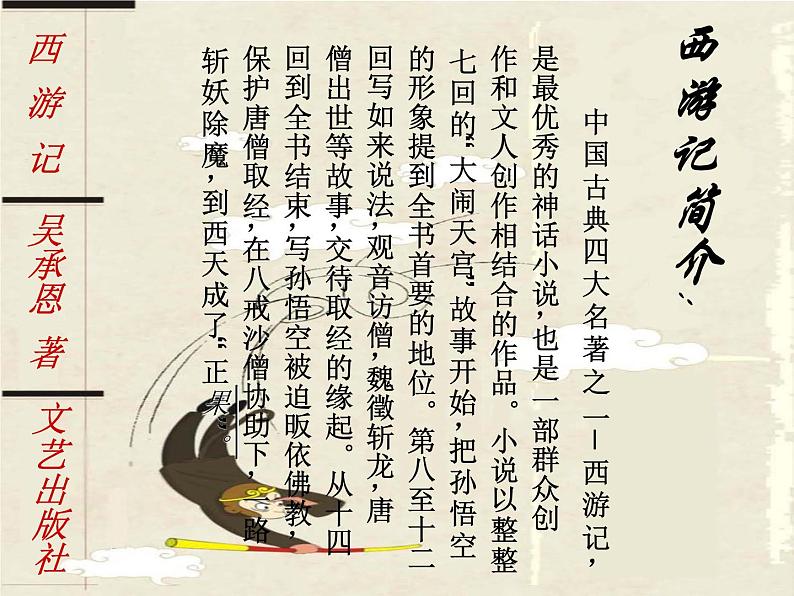 西游记简介:
中国古典四大名著之一—西游记,
是最优秀的神话小说,也是一部群众创
作和文人创作相结合的作品。小说以整整
七回的“大闹天宫”故事开始,把孙悟空
的形象提到全书首要的地位。第八至十二
回写如来说法,观音访僧,魏徵斩龙,唐
僧出世等故事,交待取经的缘起。从十四
回到全书结束,写孙悟空被迫皈依佛教,
保护唐僧取经,在八戒沙僧协助下,一路
斩妖除魔,到西天成了“正果”。
西游记
吴承恩 著
文艺出版社